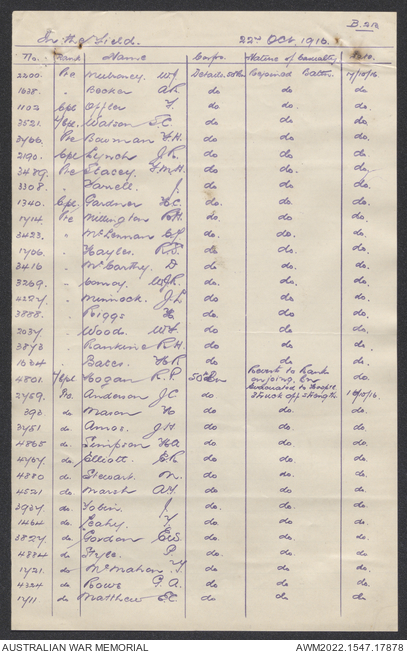 B.213
In the Field. 22nd Oct. 1916.
No. Rank Name Corps. Nature of Casualty Date.
2200. Pte Mulraney W J Rejoined Battn. 17/10/16
1638. " Booker A R do do do.
1102 Cpl Offler F. do do. do.
3521. Watson S.C. do do. do.
3466. Pte Bowman F.H. do do. do.
2190. Cpl Lynch J.R. do do. do.
3489. Pte Stacey F.M.H. do do. do
3308. " J. do do. do
1340. Cpl. Gardner H.C. do do. do
1714 Pte Millington R.H. do do. do
3423. " McLennan do do. do
1706. " Hayles R.S. do do. do
3416 " McCarthy D do do. do
3269. " Conroy W.J.R. do do. do
" J.L do do. do
3888. " Briggs H do do. do
2037 " Woods W.H do do. do
3873 Rankine R.H. do do. do
1624 " Bates H R do do. do
4801. Hogan R.P. 50th Bn Reverts to Rank on joing Bn do.
2759. Anderson J C do Struck off strength 18/10/16
393 do Mason H do do do.
3751 do Amos. J.H do do do.
4865 do Simpson H.A. do do do.
4767. do Elliott. E R do do do.
4880 do Stewart. M. do do do.
4521 do Marsh A.H. do do do.
3937 do Tobin. J do do do.
1464 do Leahy. do do do.
3827 do Gordon E.W.S do do do.
4884 do Fryer P. do do do.
1721. do McMahon do do do.
4324 do Rowe G. A. do do do.
1711 do Matthew do do do.
AUSTRALIAN WAR MEMORIAL AWM2022.1547.17878